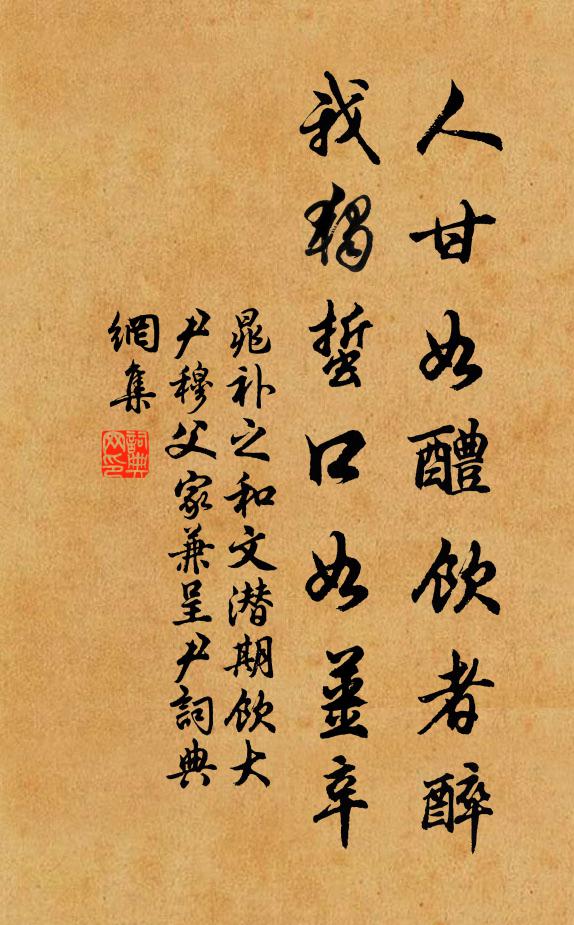 人甘如醴飲者醉
我獨蜇口如薑辛
晁补之和文潜期飲大
尹穆父家兼呈尹詞典
網集
詞典网印